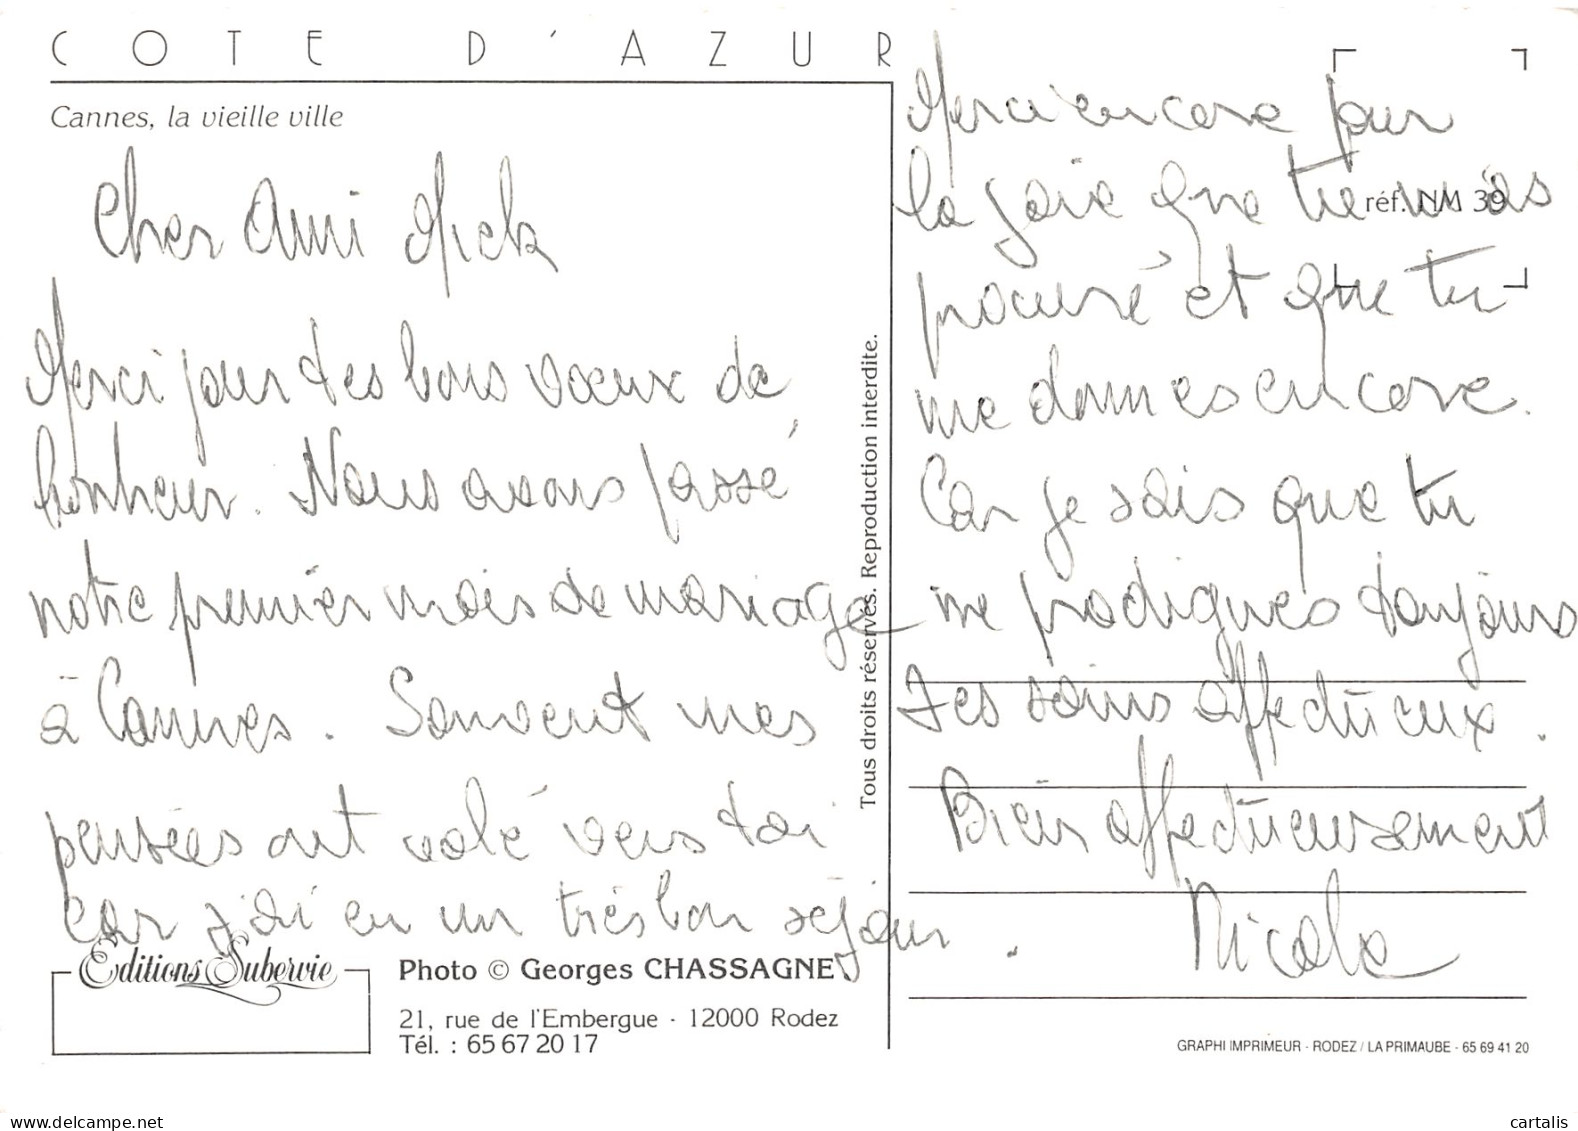 COTE D'AZUR
Cannes, la vieille ville
Cher Ami Mick
Merci pour tes bons voeux de
bonheur. Nous avons passé
notre premier mois de mariage
à Cannes. Souvent mes
pensées ont volé vers toi
car j'ai eu un très bon séjour.
Merci encore pour
la joie que tu m'as
procuré et que tu
me donnes encore.
Car je sais que tu
me prodigues toujours
tes soins affectueux.
Bien affectueusement
Nicole
réf. NM 39
Tous droits réservés. Reproduction interdite.
Editions Subervie
Photo © Georges CHASSAGNE
21, rue de l'Embergue - 12000 Rodez
Tél. : 65 67 20 17
GRAPHI IMPRIMEUR - RODEZ / LA PRIMAUBE - 65 69 41 20
www.delcampe.net
cartalis